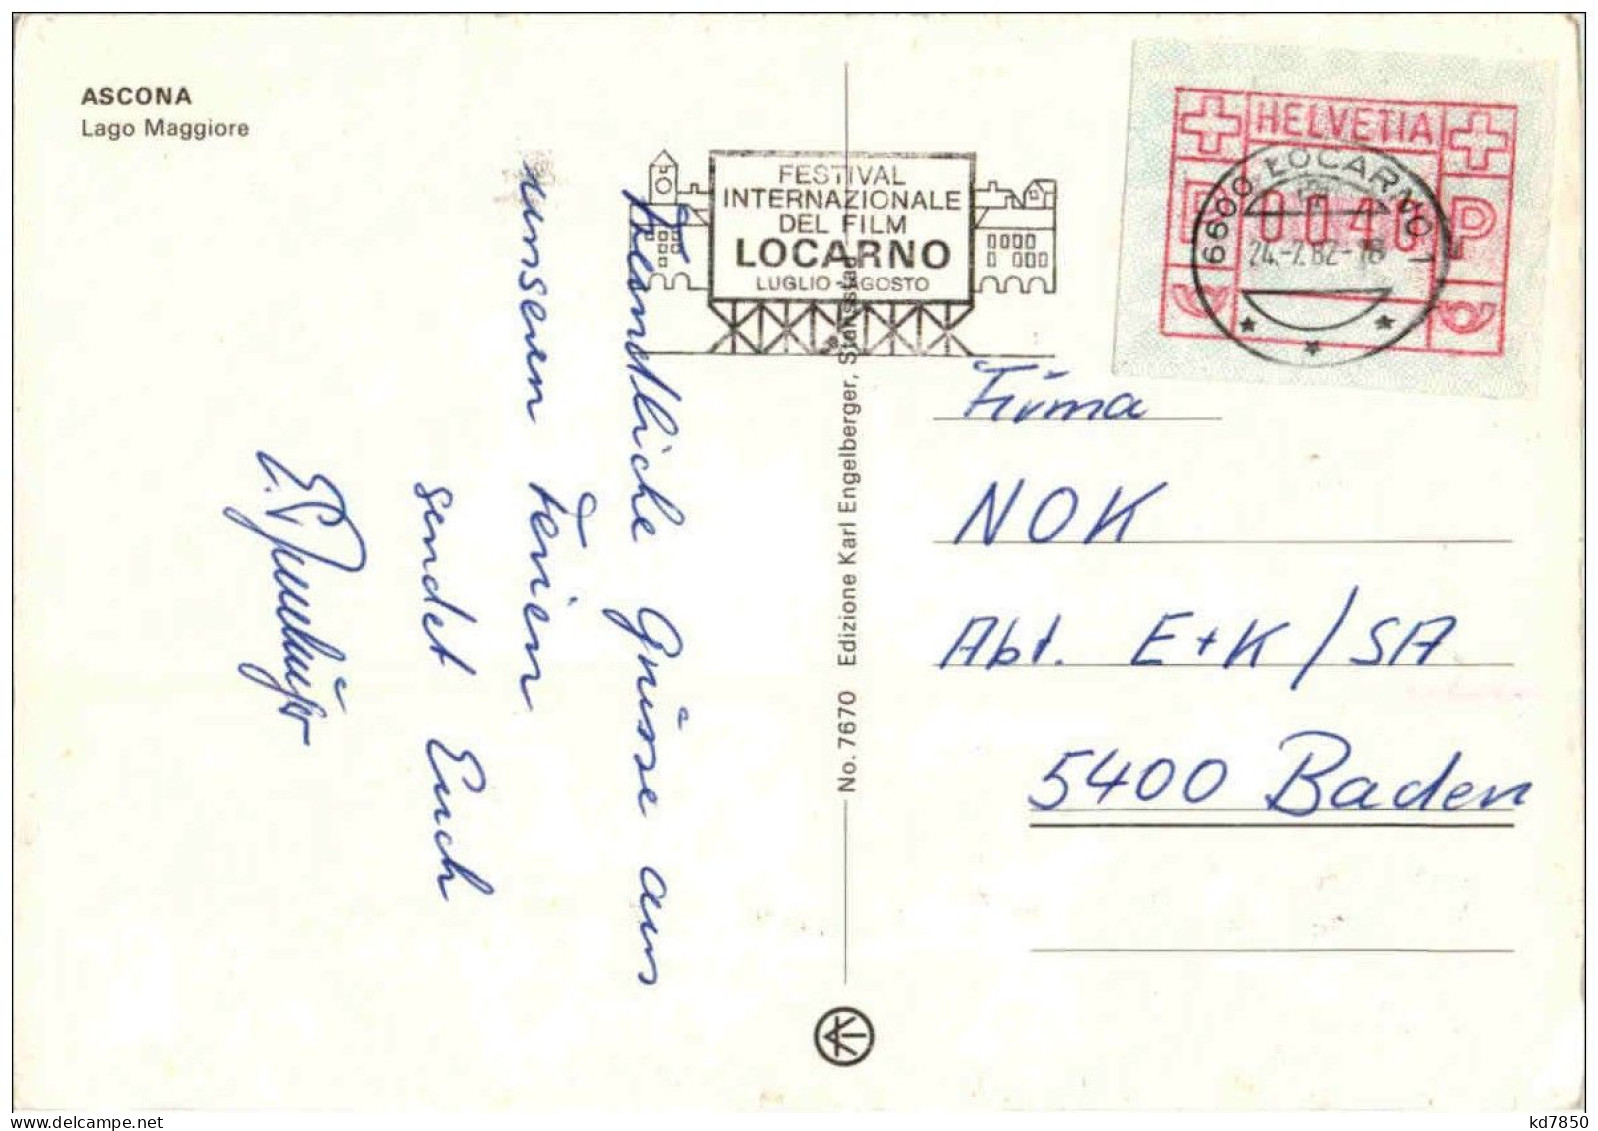 ASCONA
Lago Maggiore
FESTIVAL
INTERNAZIONALE
DEL FILM
LOCARNO
LUGLIO - AGOSTO
HELVETIA
P 0040 P
6600 LOCARNO 1
24.-7.82-18
Freundliche Grüsse aus
unseren Ferien
sendet Euch
No. 7670 Edizione Karl Engelberger, Stansstad
Firma
NOK
Abt. E+K/SA
5400 Baden
kd7850